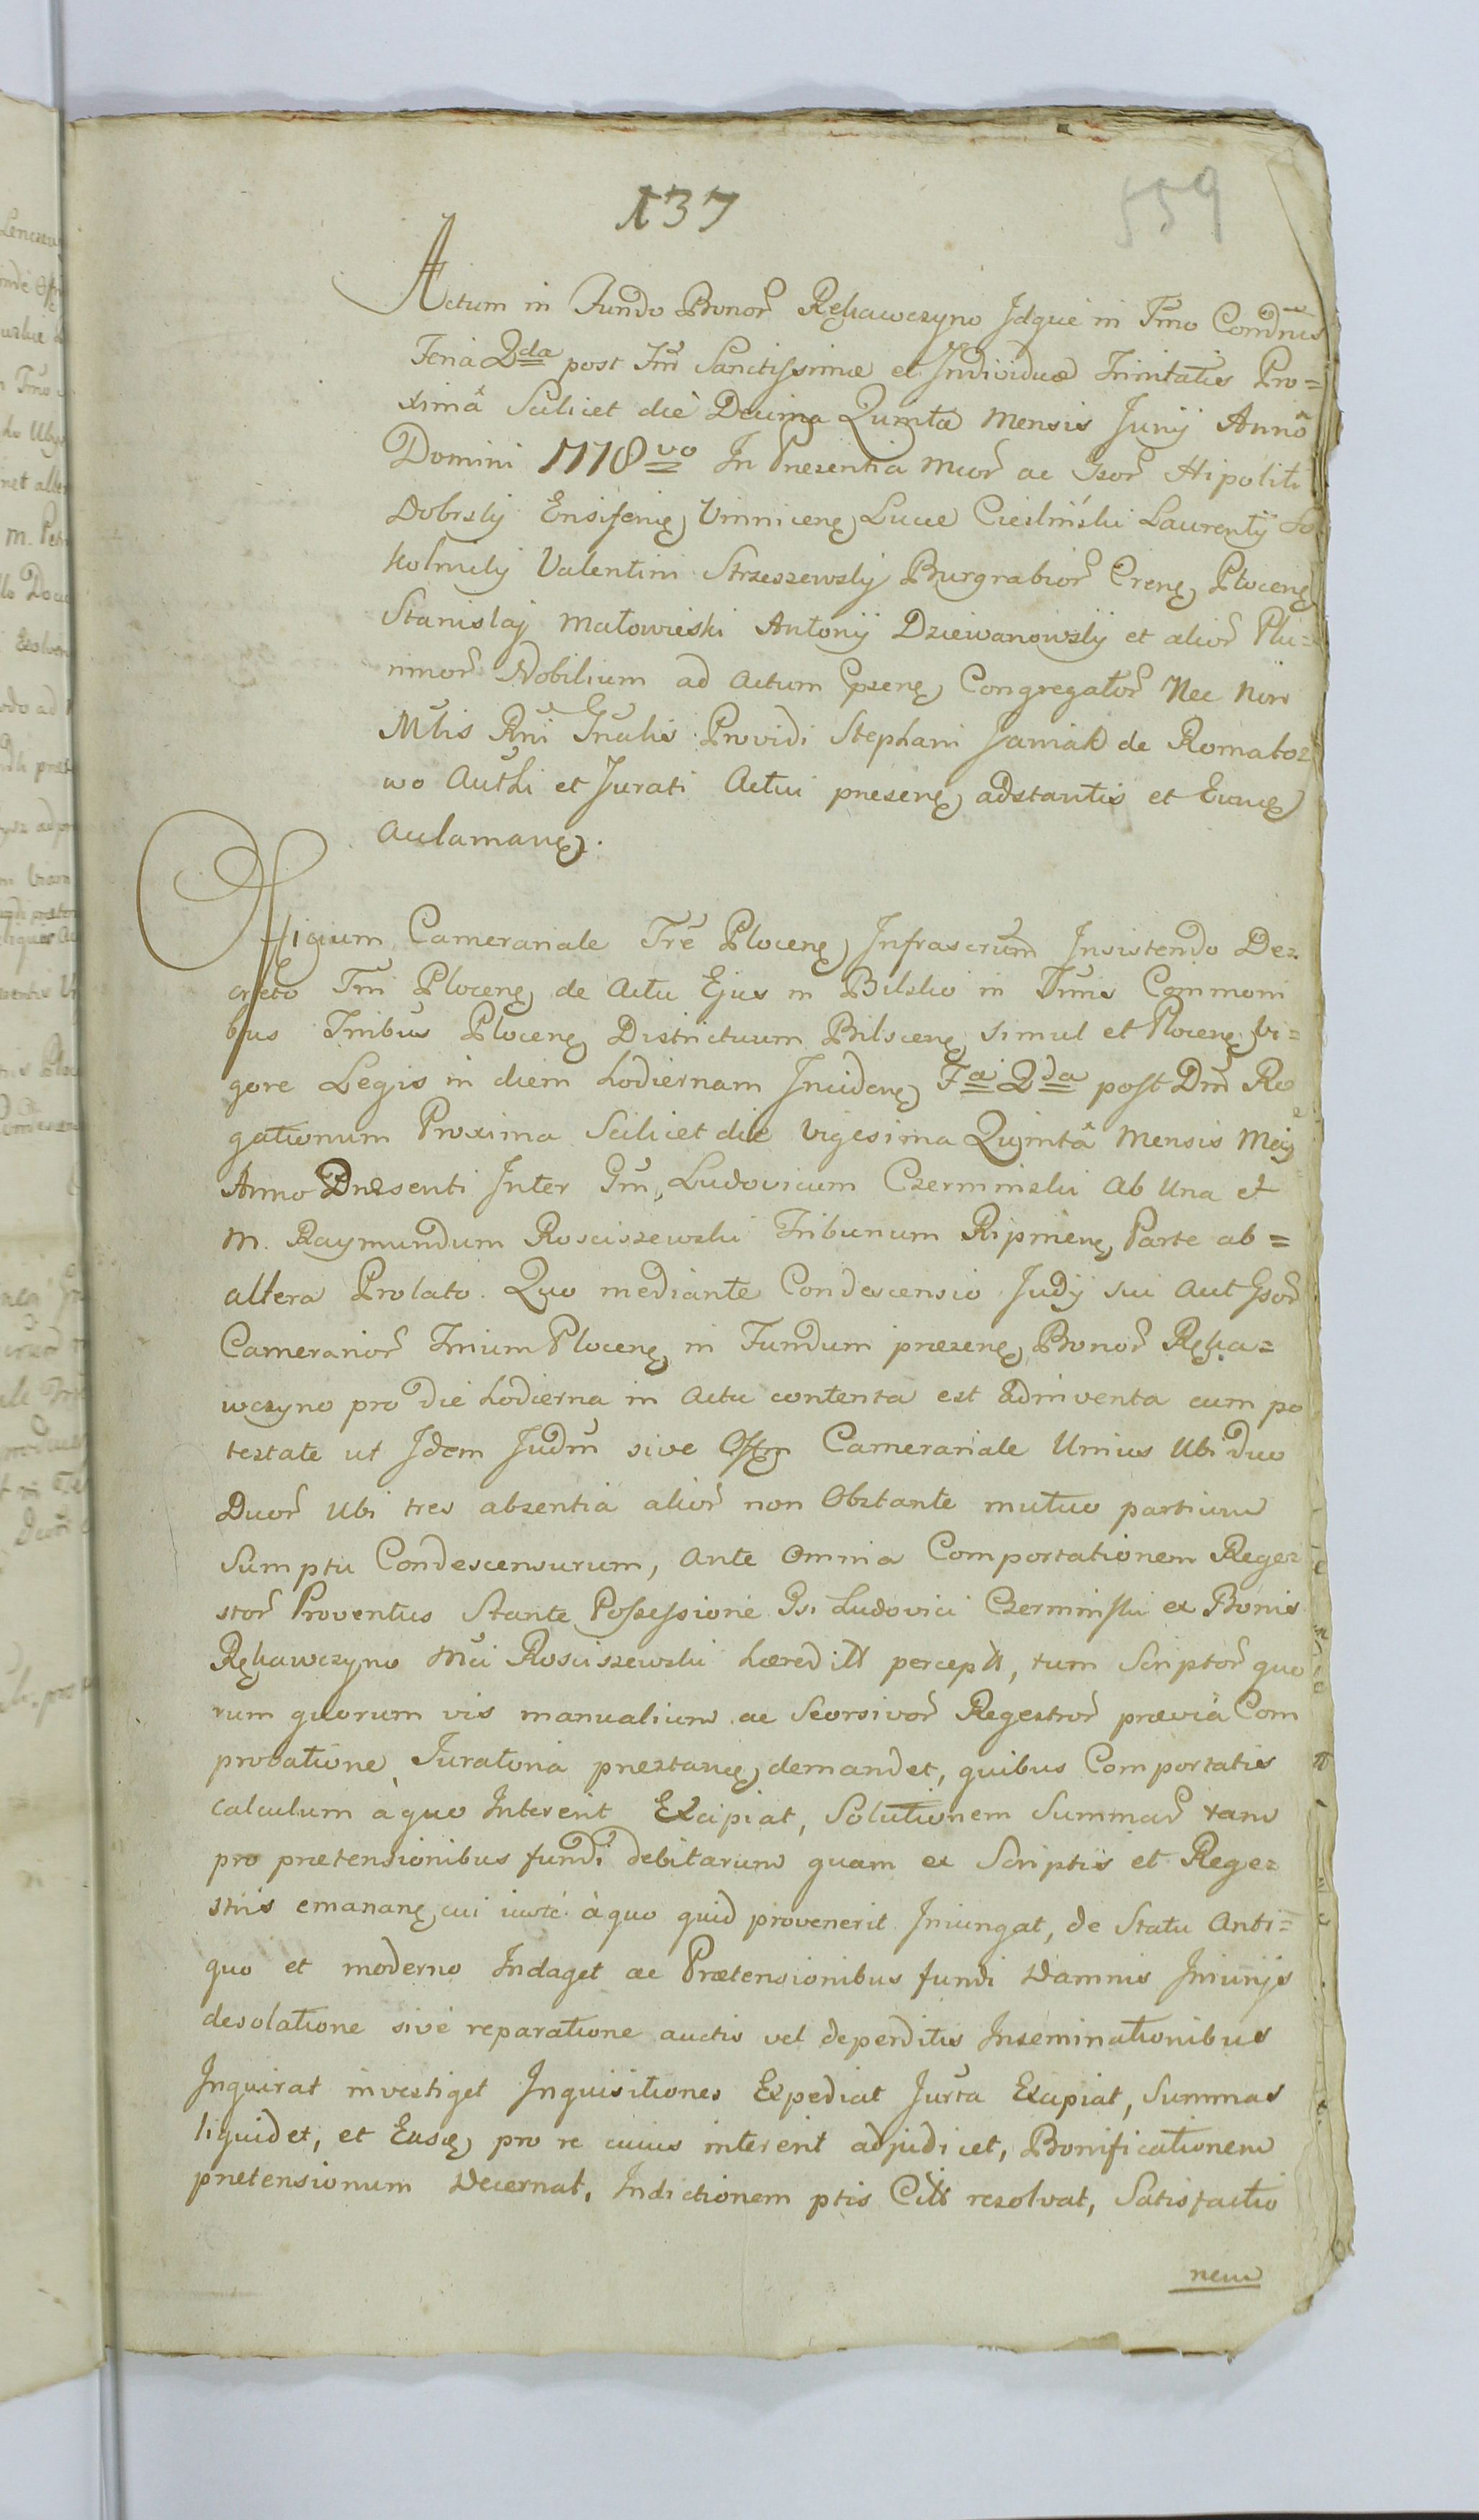 137
559
Actum in Fundo Bonor̃ Rękawczyno Idque in Tm̃o Condñis
Feria 2da post Fm̃ Sanctissimæ et Individuæ Trinitatis Pro=
ximâ Scilicet die Decima Quinta Mensis Junij Annô
Domini 1778vo In Præsentia Mcor̃ ac Gsor̃ Hipoliti
Dobrsky Ensiferię Vinnicenę Lucæ Ciesliński Laurentij So
kolnicky Valentini Strzeszewsky Burgrabior̃ Crenę Plocenę
Stanislaj Małowieski Antonij Dziewanowsky et alior̃ Plu=
rimor̃ Nobilium ad Actum Pzenę Congregator̃ Nec Non
Mt̃lis Rñi Gñalis Providi Stephani Janiak de Romato=
wo Auth̃i et Jurati Actui præsenę adstantis et Eumę
Aclamanę.
Officium Camerariale Tr̃e Plocenę Infrascrũm Insistendo De=
creto Tr̃ri Plocenę de Actu Ejus in Bilsko in Tm̃is Communi
bus Tr̃ribus Plocenę Districtuum Bilscenę simul et Plocenę Vi=
gore Legis in diem hodiernam Incidenę Fa 2da post Dm̃ Ro
gationum Proxima Scilicet die Vigesima Quintâ Mensis Maij
Anno Præsenti Inter Gm̃, Ludovicum Czerminski Ab Una et
M. Raymundum Rosciszewski Tribunum Ripinenę, Parte ab=
altera Prolato. Quo mediante Condescensio Judij sui aut Gsor̃
Camerarior̃ Trium Plocenę in Fundum præzenę Bonor̃ Ręka=
wczyno pro die hodierna in Actu contenta est adinventa cum po
testate ut Idem Judm̃ sive Offm̃ Camerariale Unius Ubi duo
Duor̃ Ubi tres absentia alior̃ non Obstante mutuo partium
Sumptu Condescensurum, Ante Omnia Comportationem Rege=
stor̃ Proventus Stante Possessione Gsi Ludovici Czerminski ex Bonis
Rękawczyno Mci Rosciszewski hæreditt percept̃t, tum Scriptor̃ quo
rum quorum vis manualium ac Seorsivor̃ Regestror̃ prævia Com
probatione Juratoria præstanę, demandet, quibus Comportatis
Calculum à quo Intererit Excipiat, Solutionem Summar̃ tam
pro prætensionibus fundi debitarum quam ex Scriptis et Rege=
stris emananę, cui iuste à quo quid provenerit Iniungat, de Statu Anti=
quo et moderno Indaget ac Prætensionibus fundi Damnis Iniurijs
desolatione sive reparatione auctis vel deperditis Inseminationibus
Inquirat investiget Inquisitiones Expediat Jurta Excipiat, Summas
liquidet, et Easdę, pro re cuius intererit adjudicet, Bonificationem
prætensionum Decernat, Indictionem ptis Citt resolvat, Satisfactio
nem